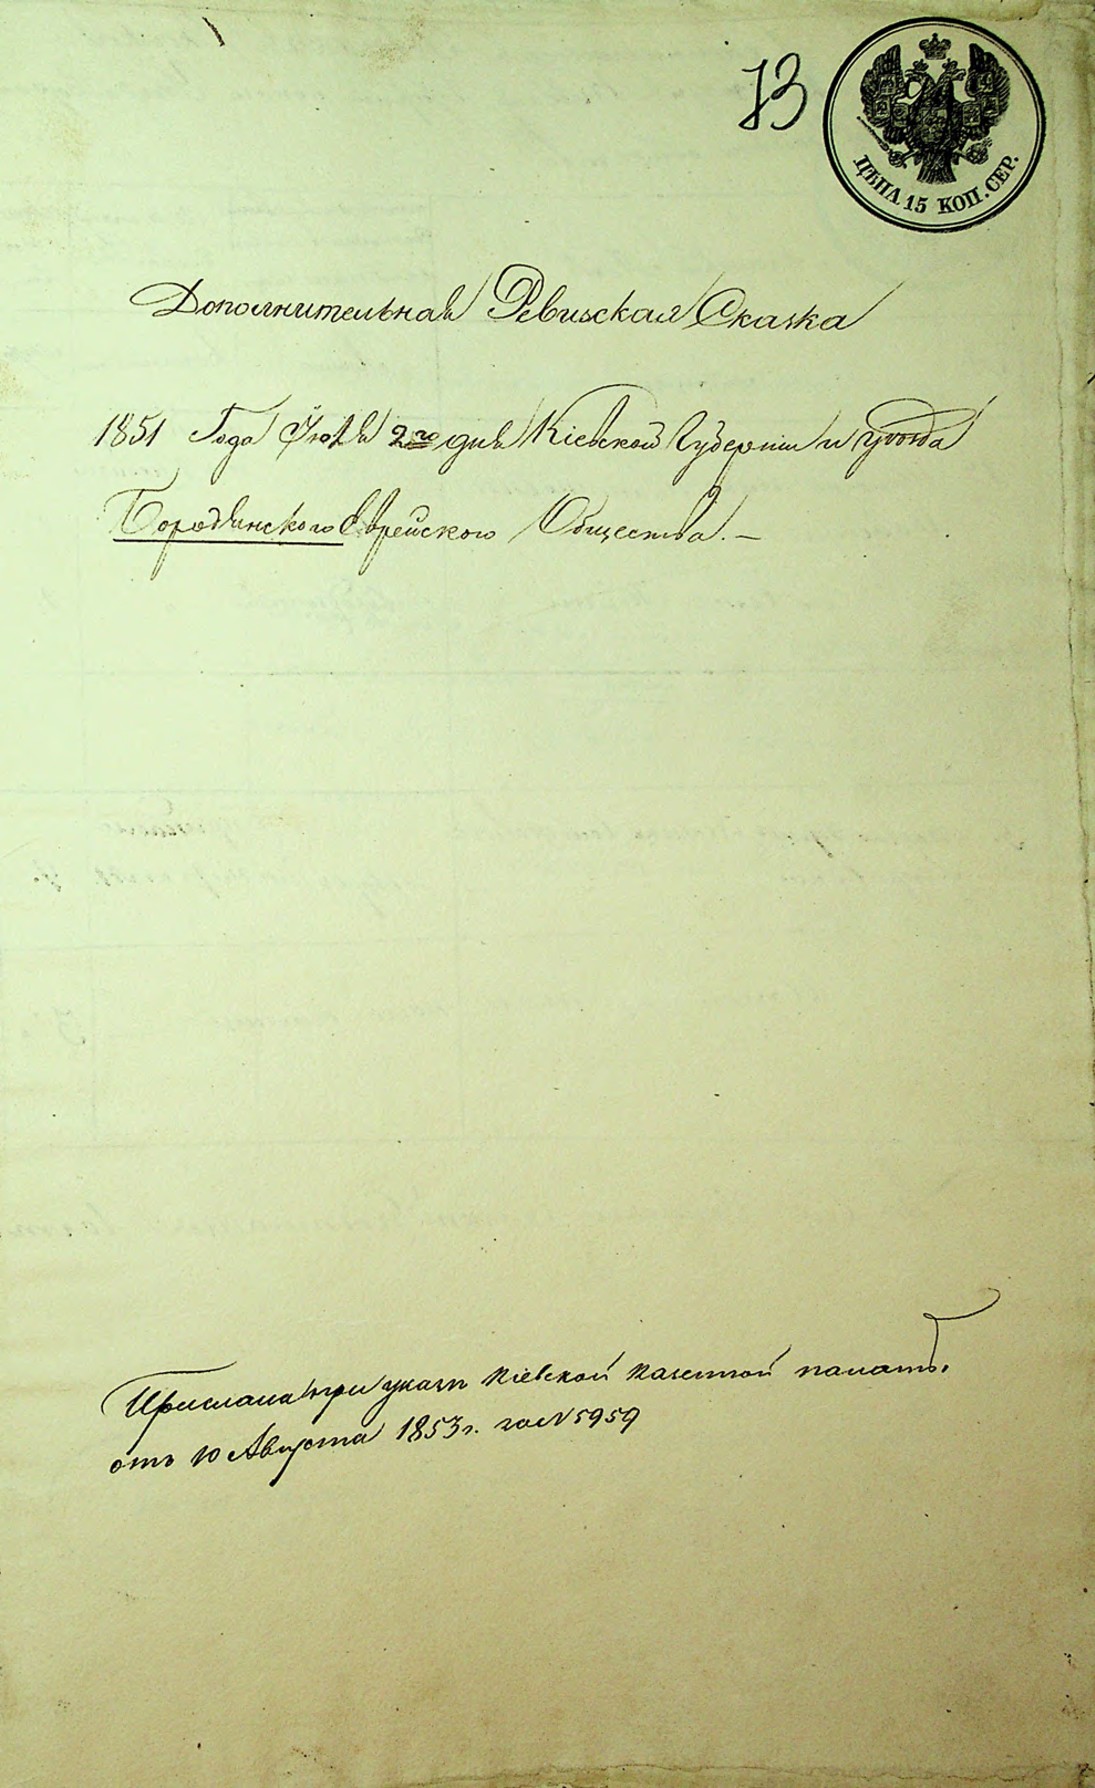 73
ЦѢНА 15 КОП. СЕР.
Дополнительная Ревизская Сказка
1851 Года Іюля 2го дня Кіевской Губерніи и уѣзда
Бородянского Еврейского Общества. —
Прислана при указѣ Кіевской казенной палаты
отъ 10 Августа 1853 г. за № 5959